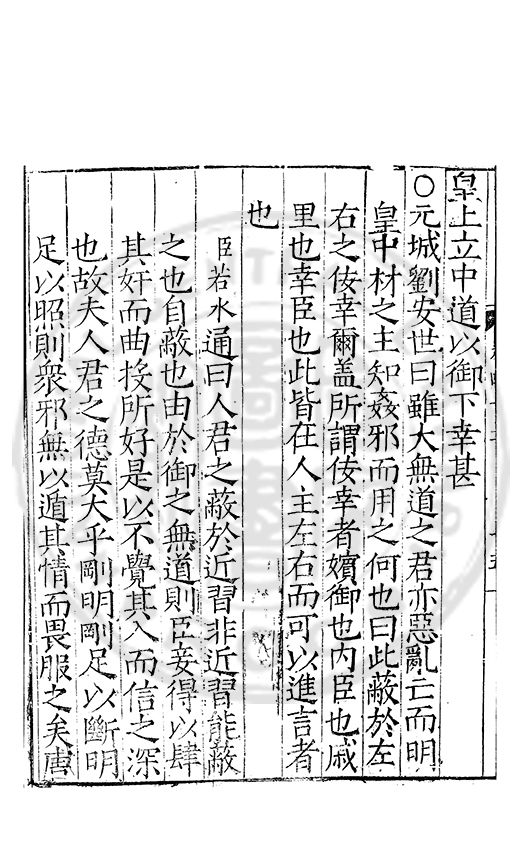 皇上立中道以御下幸甚
○元城劉安世曰雖大無道之君亦惡亂亡而明
皇中材之主知姦邪而用之何也曰此蔽於左
右之佞幸爾盖所謂佞幸者嬪御也内臣也戚
里也幸臣也此皆在人主左右而可以進言者
也
臣若水通曰人君之蔽於近習非近習能蔽
之也自蔽也由於御之無道則臣妾得以肆
其奸而曲投所好是以不覺其入而信之深
也故夫人君之德莫大乎剛明剛足以斷明
足以照則衆邪無以遁其情而畏服之矣唐